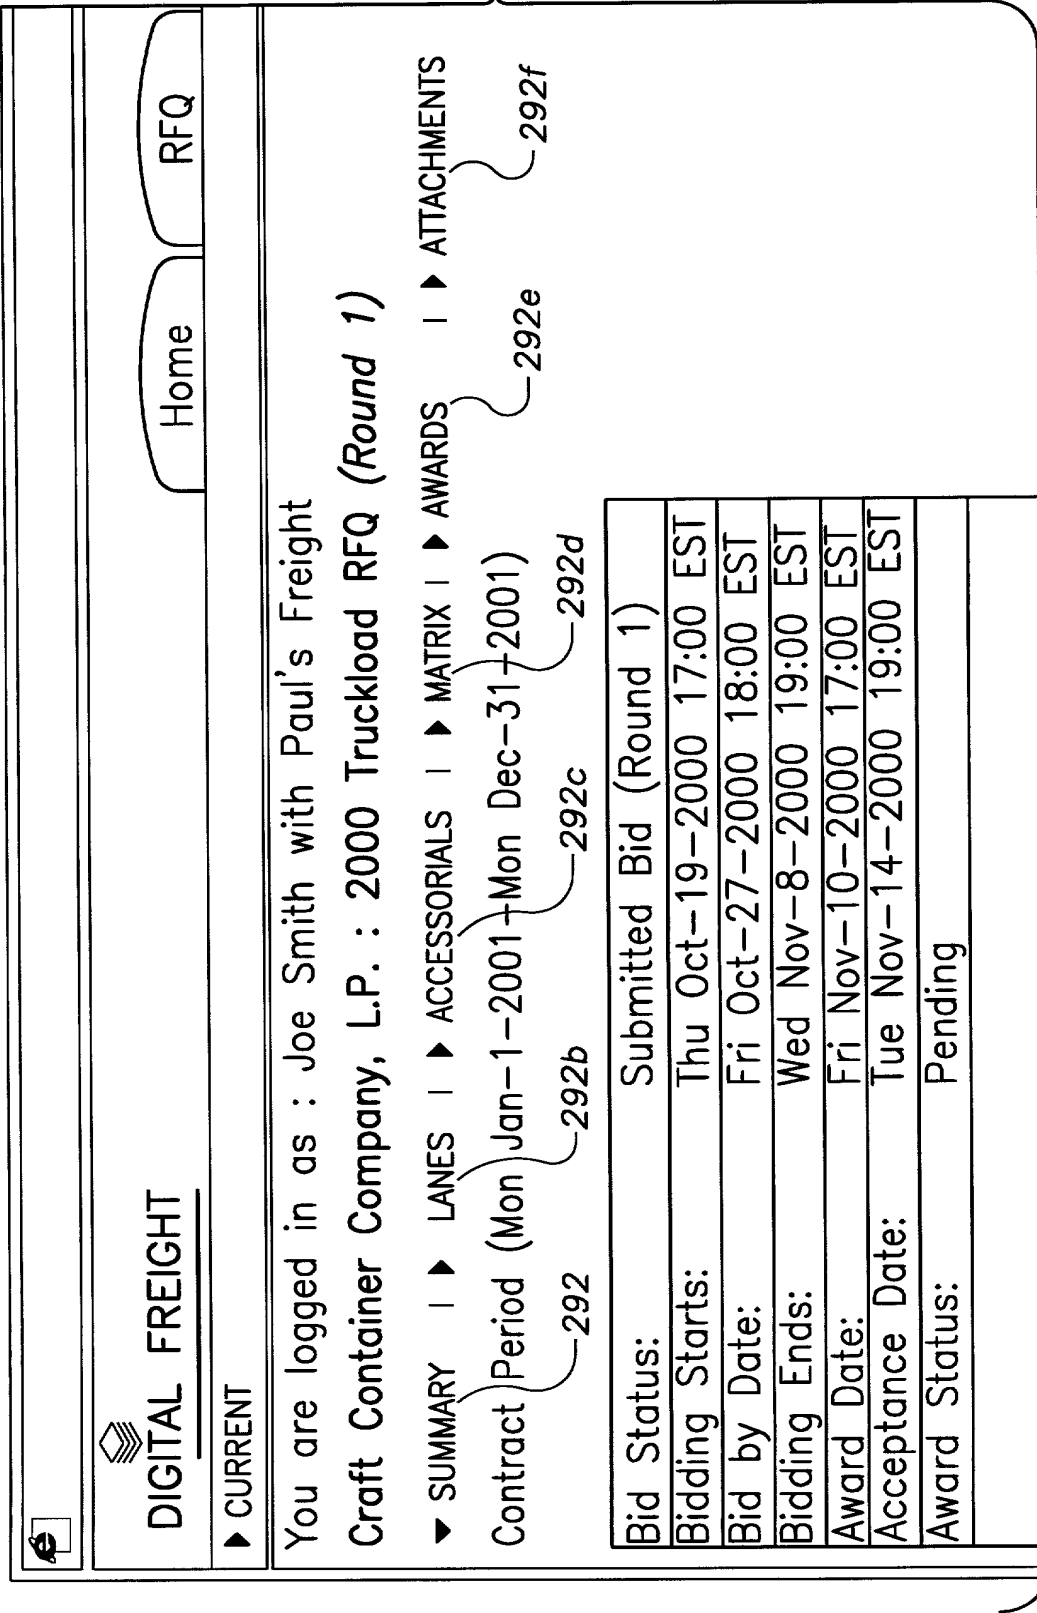 DIGITAL FREIGHT
Home RFQ
▶ CURRENT
You are logged in as : Joe Smith with Paul's Freight
Craft Container Company, L.P. : 2000 Truckload RFQ (Round 1)
▼ SUMMARY | ▶ LANES | ▶ ACCESSORIALS | ▶ MATRIX | ▶ AWARDS | ▶ ATTACHMENTS
Contract Period (Mon Jan-1-2001-Mon Dec-31-2001)
292 292b 292c 292d 292e 292f
Bid Status: Submitted Bid (Round 1)
Bidding Starts: Thu Oct-19-2000 17:00 EST
Bid by Date: Fri Oct-27-2000 18:00 EST
Bidding Ends: Wed Nov-8-2000 19:00 EST
Award Date: Fri Nov-10-2000 17:00 EST
Acceptance Date: Tue Nov-14-2000 19:00 EST
Award Status: Pending